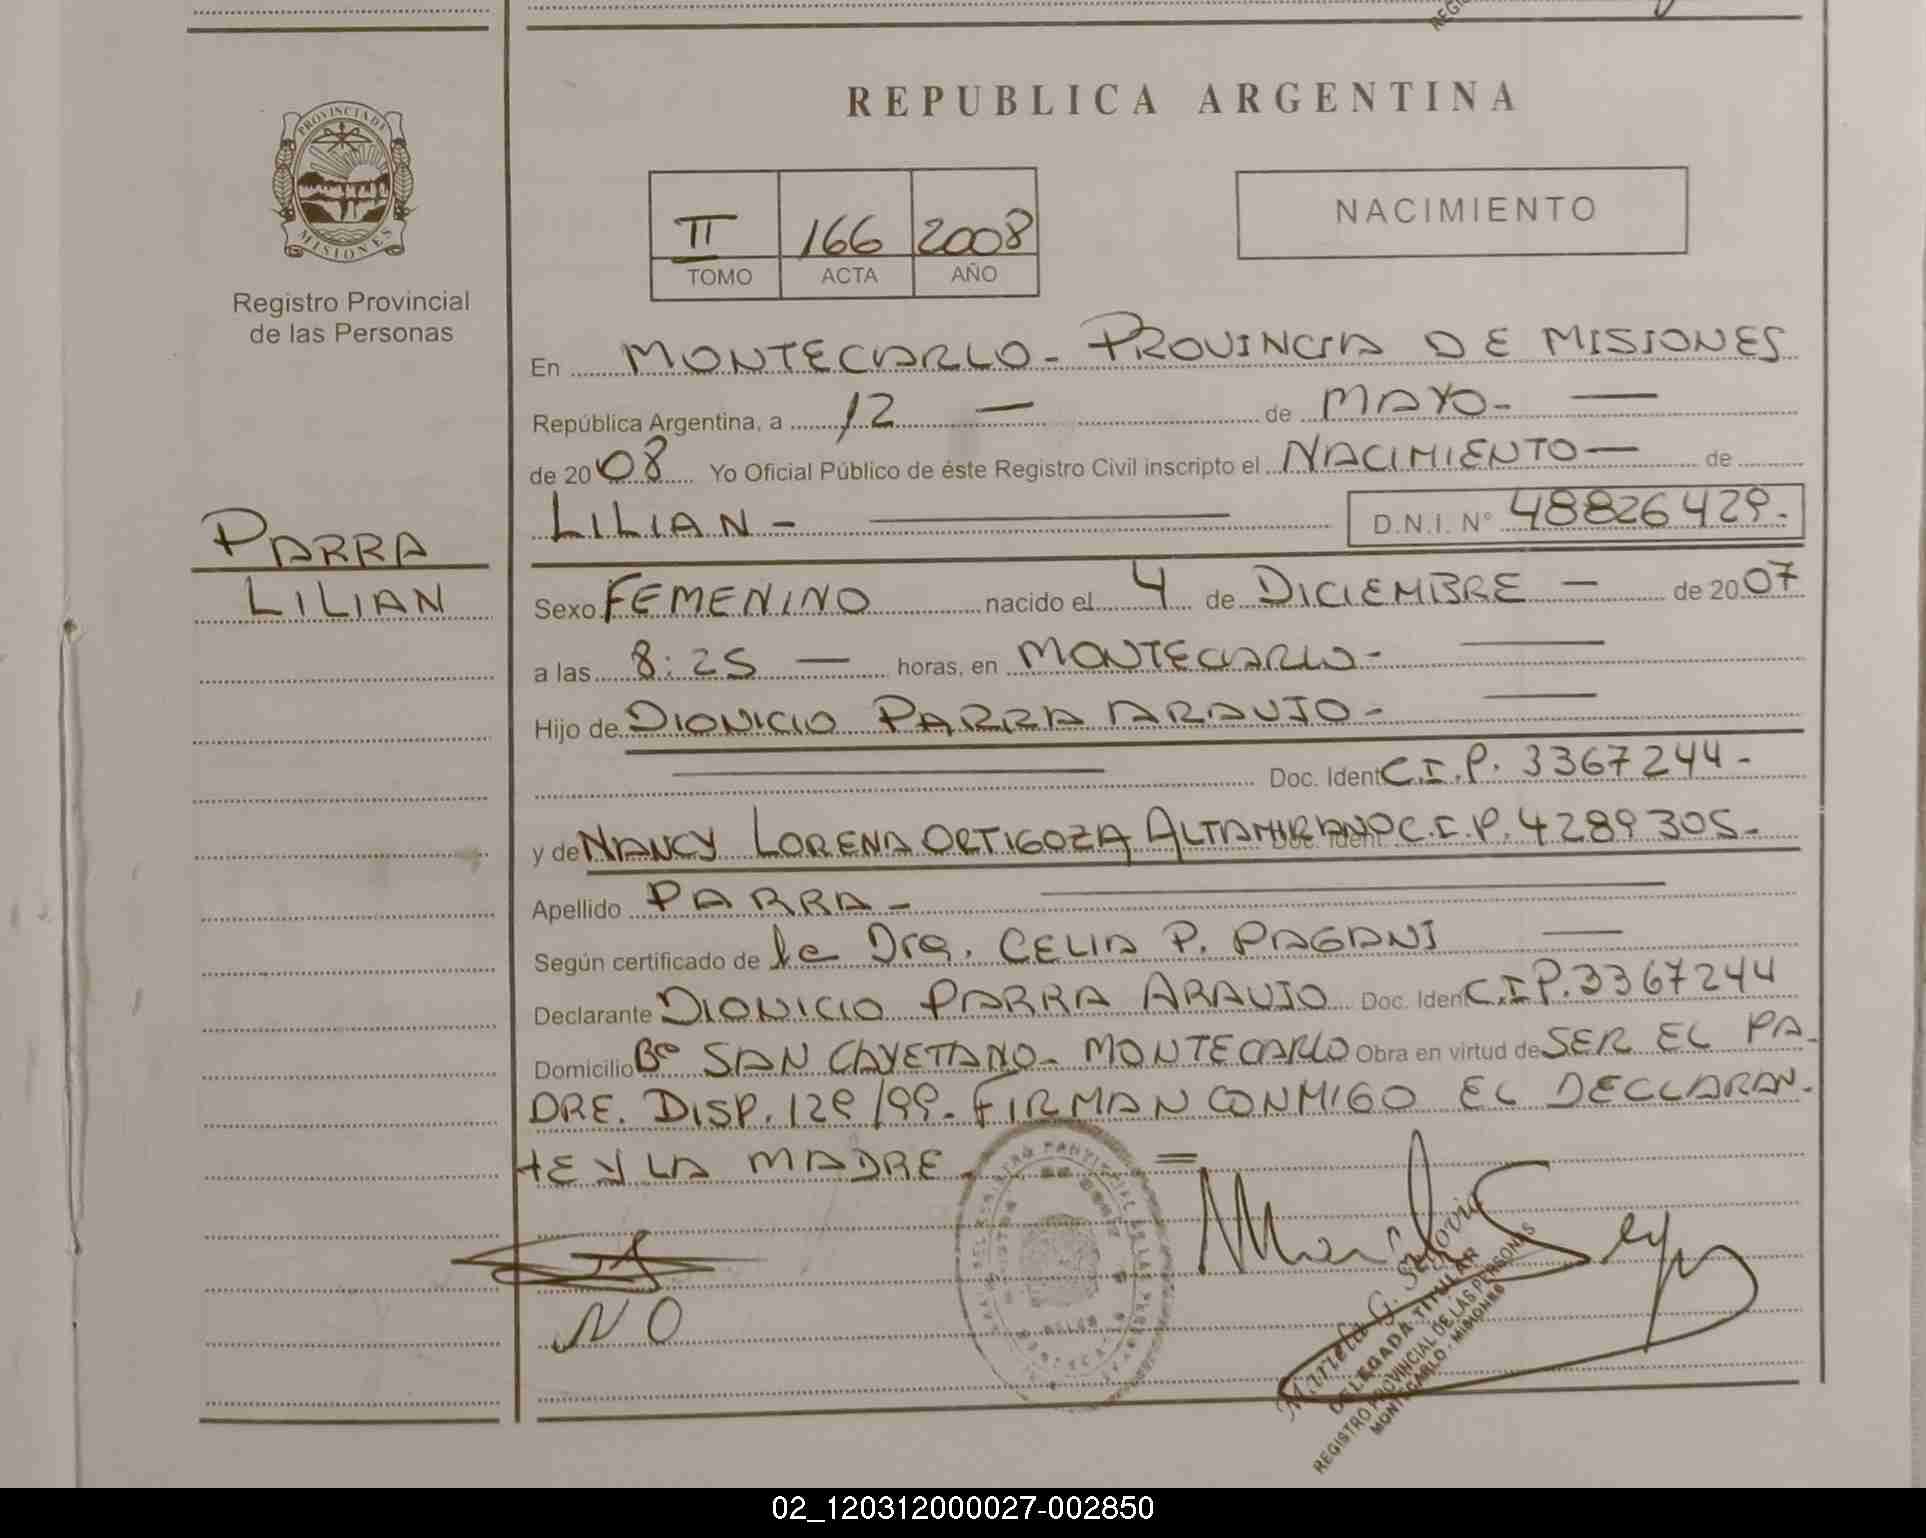 REPUBLICA ARGENTINA
PROVINCIA DE
MISIONES
Registro Provincial
de las Personas
II 166 2008
TOMO ACTA AÑO
NACIMIENTO
En MONTECARLO- PROVINCIA DE MISIONES
República Argentina, a 12 — de MAYO- —
de 2008 Yo Oficial Público de éste Registro Civil inscripto el NACIMIENTO — de
LILIAN - — D.N.I. N° 48826429.
PARRA
LILIAN
Sexo FEMENINO nacido el 4 de DICIEMBRE — de 2007
a las 8:25 — horas, en MONTECARLO- —
Hijo de DIONICIO PARRA ARAUJO- —
— Doc. Ident C.I.P. 3367244-
y de NANCY LORENA ORTIGOZA ALTAMIRANO Doc. Ident. C.I.P. 4289305-
Apellido PARRA- —
Según certificado de la Dra. CELIA P. PAGANI —
Declarante DIONICIO PARRA ARAUJO Doc. Ident C.I.P. 3367244
Domicilio B° SAN CAYETANO- MONTECARLO Obra en virtud de SER EL PA-
DRE. DISP. 129/99. FIRMAN CONMIGO EL DECLARAN-
TE Y LA MADRE. =
NO
Mirrela G. Segovia
DELEGADA TITULAR
REGISTRO PROVINCIAL DE LAS PERSONAS
MONTECARLO - MISIONES
02_120312000027-002850